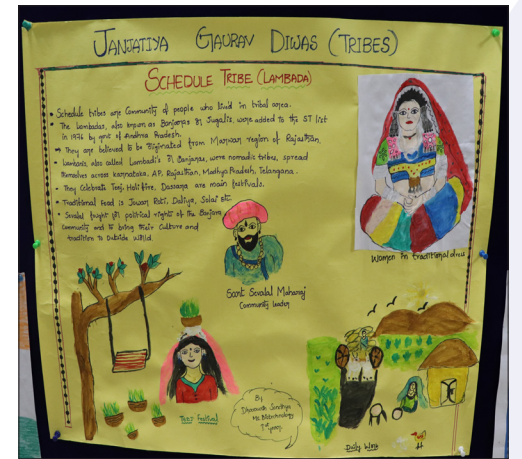 JANJATIYA GAURAV DIWAS (TRIBES)
SCHEDULE TRIBE (LAMBADA)
Schedule tribes are Community of people who lived in tribal area.
The Lambadas, also known as Banjaras or Jugalis, were added to the ST list
in 1976 by govt of Andhra Pradesh.
They are believed to be originated from Marwar region of Rajasthan.
Lambada, also called Lambadi's Banjaras, were nomadic tribes, spread
themselves across Karnataka, AP, Rajasthan, Madhya Pradesh, Telangana.
They Celebrate Teej, Holi fire, Dassara are main festivals.
Traditional Food is Jowar Roti, Daliya, Saloi etc.
Sevalal fought for political rights of the Banjara
Community and to bring their Culture and
tradition to Outside world.
Women in traditional dress
Sant Sevalal Maharaj
Community leader
TEEJ Festival
By
Dharavath Sandhya
Msc Biotechnology
1st year
Daily Work